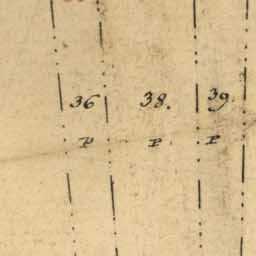 36 38. 39
P P P